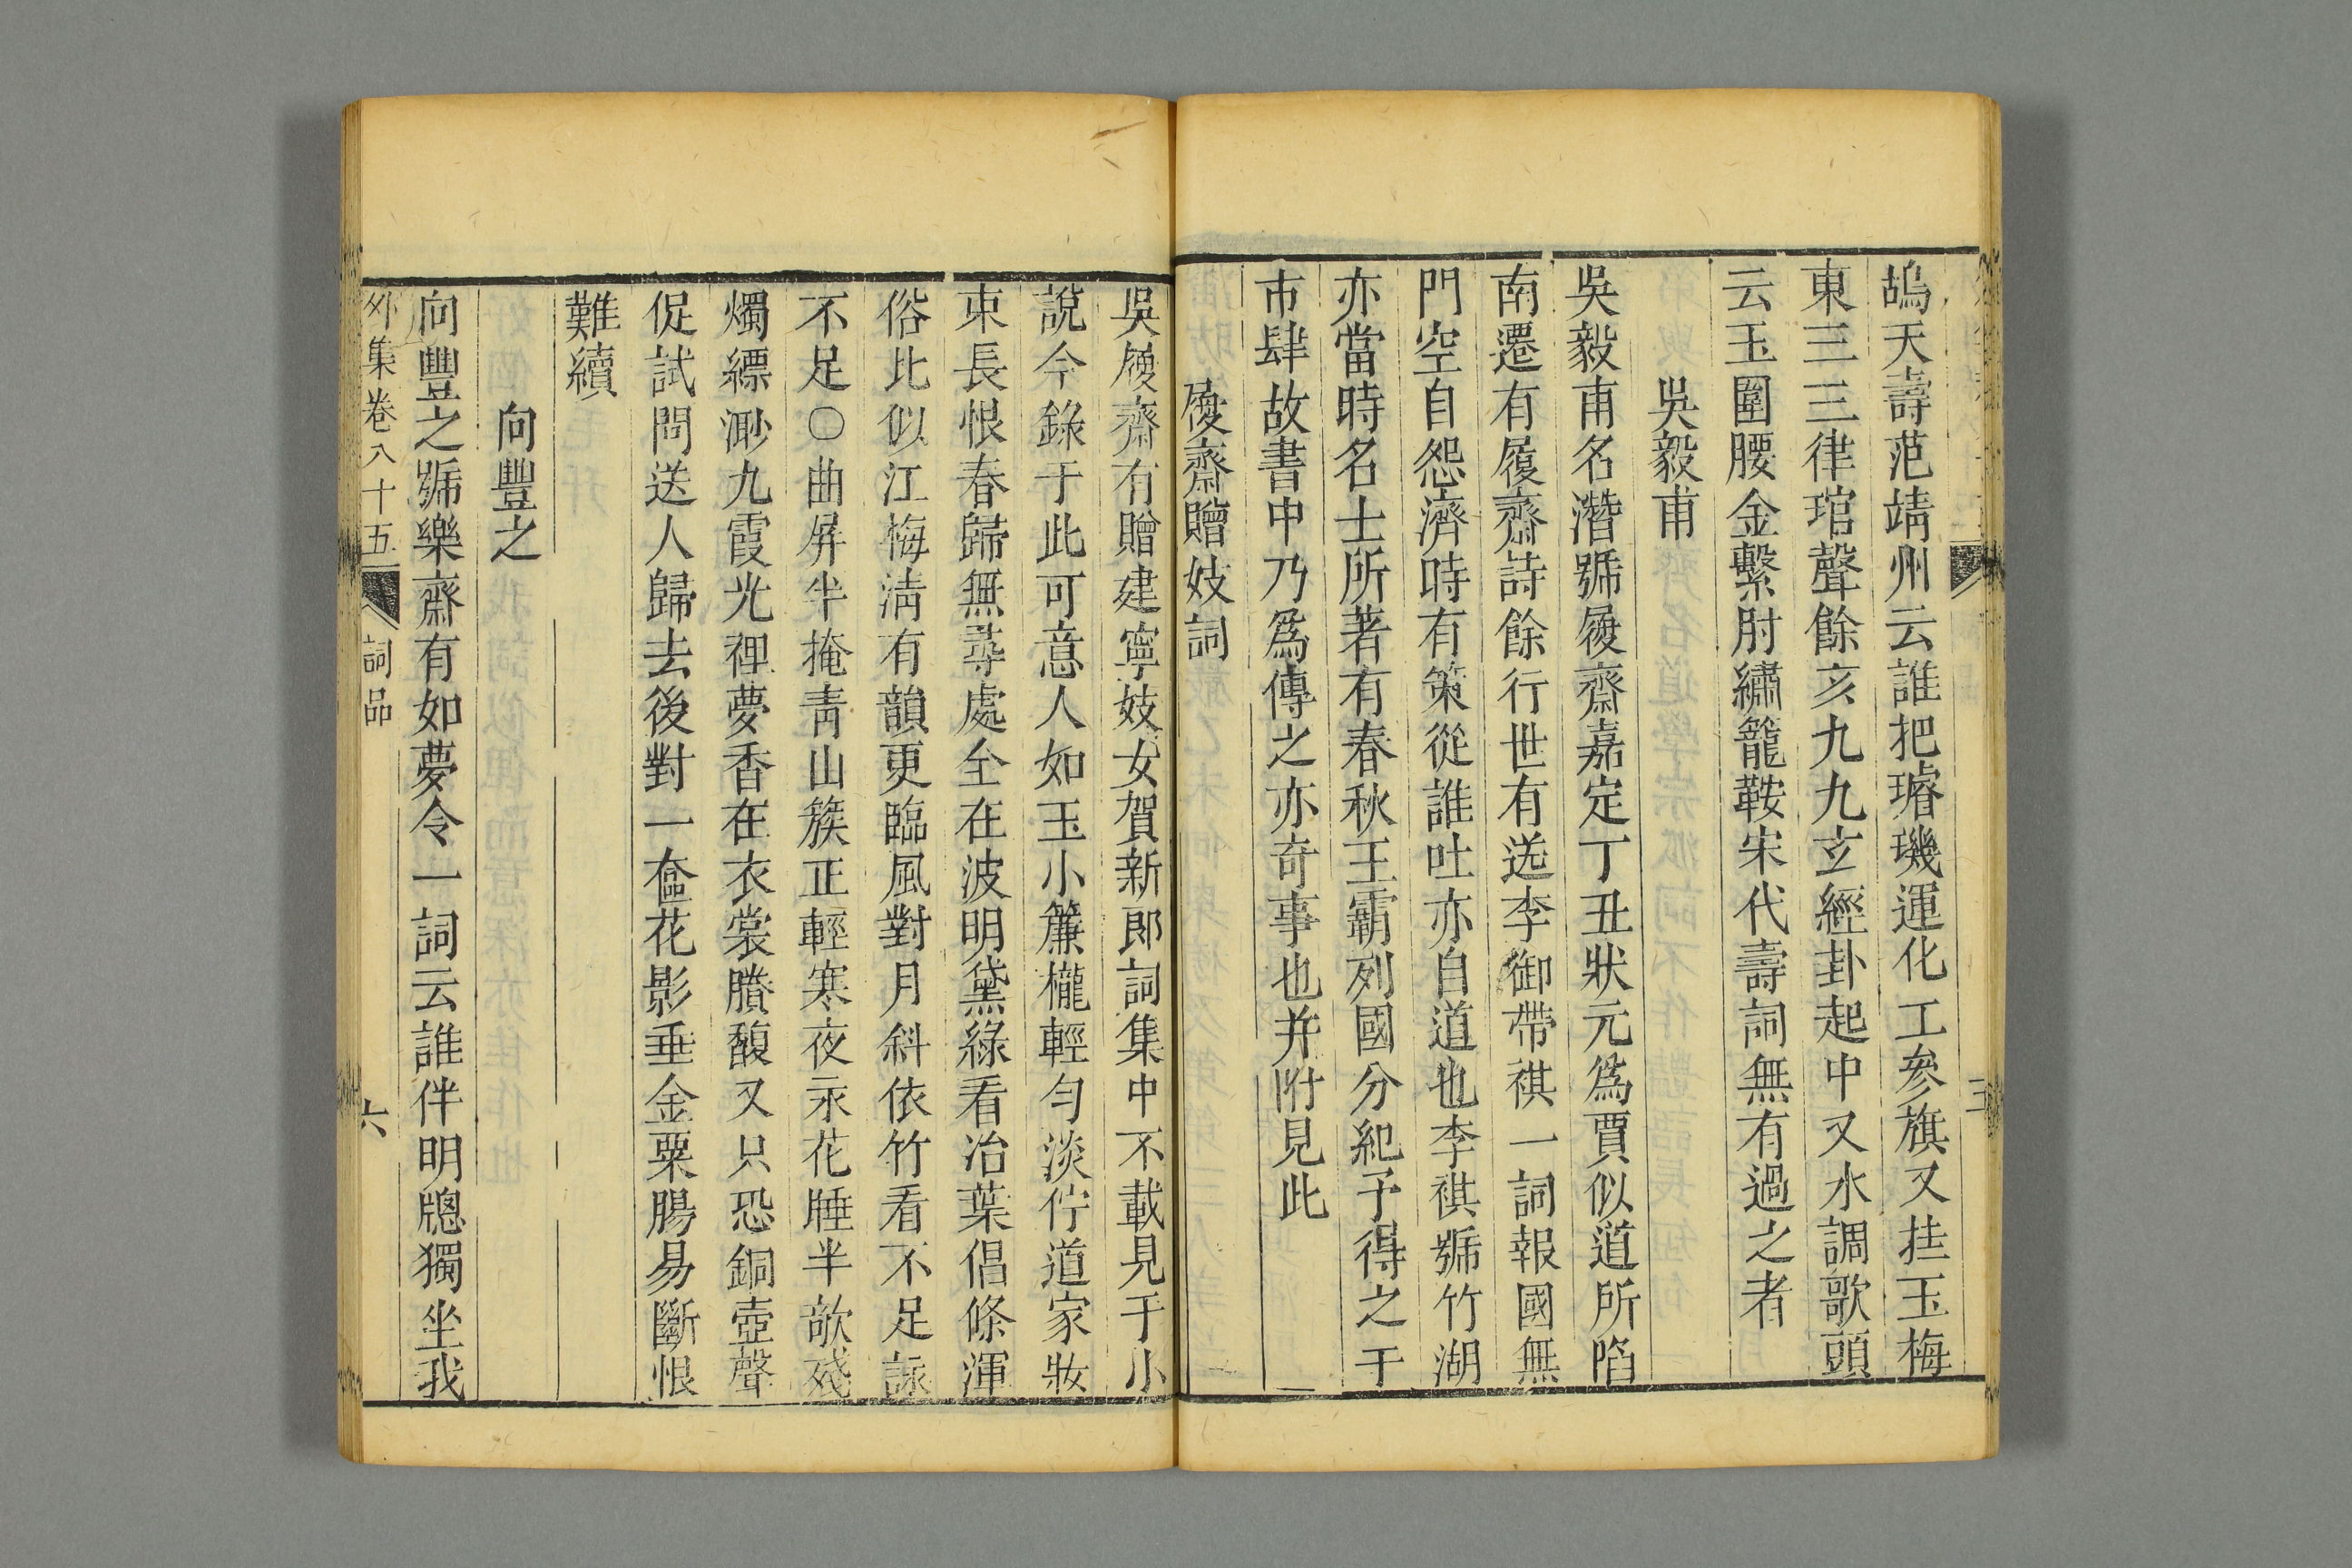 鴣天壽范靖州云誰把璿璣運化工參旗又挂玉梅
東三三律琯聲餘亥九九玄經卦起中又水調歌頭
云玉圍腰金繫肘繡籠鞍宋代壽詞無有過之者
吳毅甫
吳毅甫名潛號履齋嘉定丁丑狀元爲賈似道所陷
南遷有履齋詩餘行世有送李御帶祺一詞報國無
門空自怨濟時有策從誰吐亦自道也李祺號竹湖
亦當時名士所著有春秋王霸列國分紀予得之于
市肆故書中乃爲傳之亦奇事也并附見此
履齋贈妓詞
吳履齋有贈建寧妓女賀新郎詞集中不載見于小
說今錄于此可意人如玉小簾櫳輕勻淡佇道家妝
束長恨春歸無尋處全在波明黛綠看冶葉倡條渾
俗比似江梅淸有韻更臨風對月斜依竹看不足詠
不足○曲屏半掩靑山簇正輕寒夜永花睡半欹殘
燭縹渺九霞光裡夢香在衣裳賸馥又只恐銅壺聲
促試問送人歸去後對一奩花影垂金粟腸易斷恨
難續
向豐之
向豐之號樂齋有如夢令一詞云誰伴明牕獨坐我
外集卷八十五
詞品
六